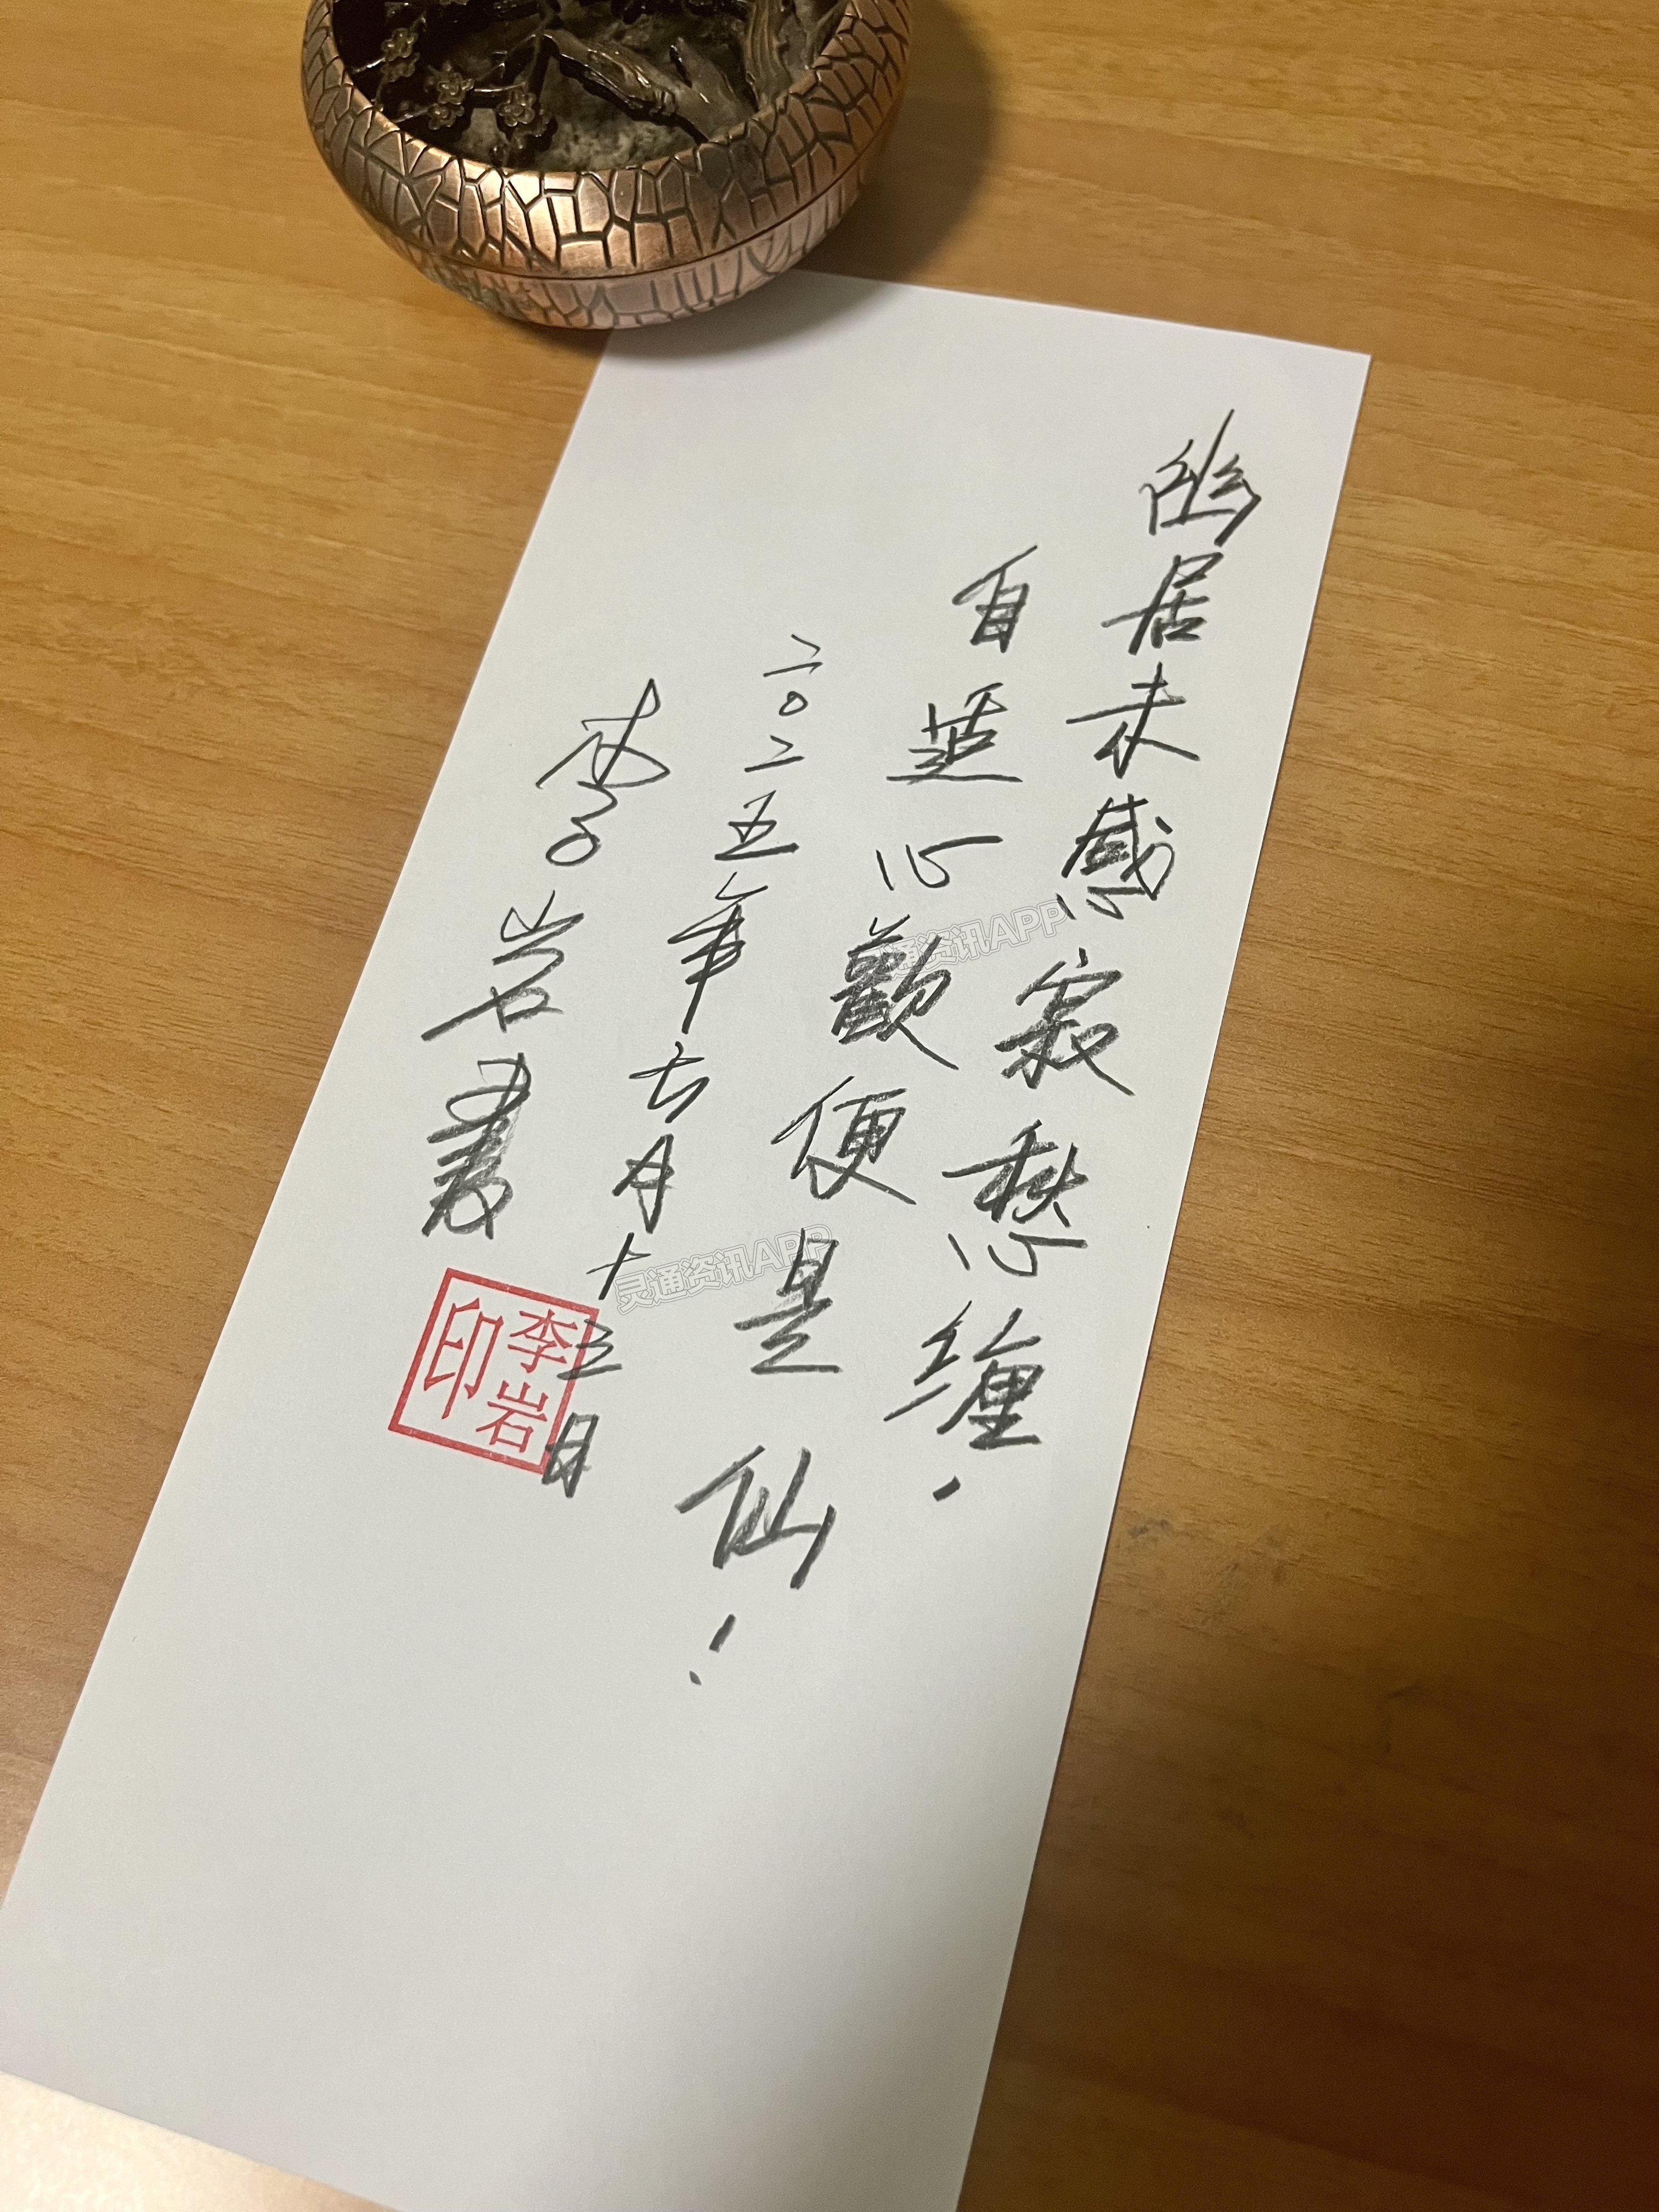 幽居未感寂愁缠，
自心歡便是仙！
二〇二五年月十三日
李岩書
李岩印
灵通资讯APP
灵通资讯APP